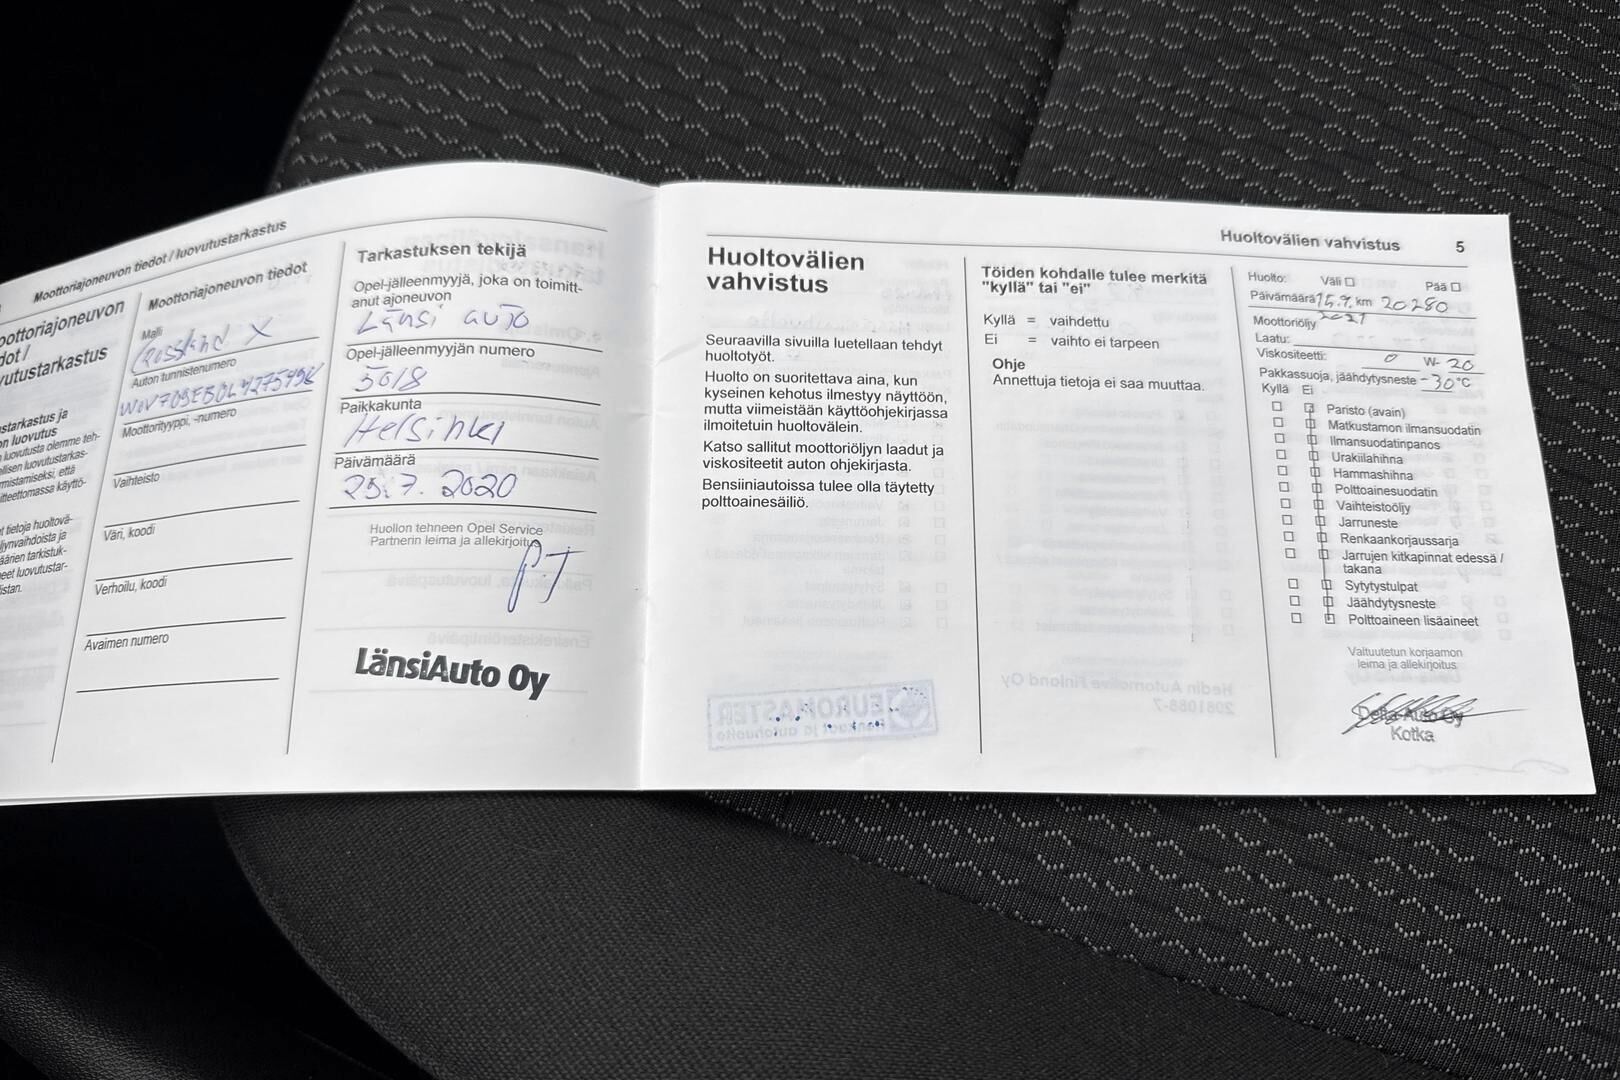 Moottoriajoneuvon tiedot / luovutustarkastus
oottoriajoneuvon
dot /
vutustarkastus
ustarkastus ja
on luovutus
luovutusta olemme teh-
llisen luovutustarkas-
mistamiseksi, että
itteettomassa käyttö-
t tietoja huoltovä-
ljynvaihdoista ja
äärien tarkistuk-
neet luovutustar-
listan.
Moottoriajoneuvon tiedot
Malli
Crossland X
Auton tunnistenumero
Moottorityyppi, -numero
Vaihteisto
Väri, koodi
Verhoilu, koodi
Avaimen numero
Tarkastuksen tekijä
Opel-jälleenmyyjä, joka on toimitt-
anut ajoneuvon
Länsi auto
Opel-jälleenmyyjän numero
5018
Paikkakunta
Helsinki
Päivämäärä
25.7.2020
Huollon tehneen Opel Service
Partnerin leima ja allekirjoitus
LänsiAuto Oy
Huoltovälien
vahvistus
Seuraavilla sivuilla luetellaan tehdyt
huoltotyöt.
Huolto on suoritettava aina, kun
kyseinen kehotus ilmestyy näyttöön,
mutta viimeistään käyttöohjekirjassa
ilmoitetuin huoltovälein.
Katso sallitut moottoriöljyn laadut ja
viskositeetit auton ohjekirjasta.
Bensiiniautoissa tulee olla täytetty
polttoainesäiliö.
Töiden kohdalle tulee merkitä
"kyllä" tai "ei"
Kyllä = vaihdettu
Ei = vaihto ei tarpeen
Ohje
Annettuja tietoja ei saa muuttaa.
Huoltovälien vahvistus 5
Huolto: Väli Pää
Päivämäärä 15.9. km 20280
2021
Moottoriöljy
Laatu:
Viskositeetti: 0 W- 20
Pakkassuoja, jäähdytysneste -30 °C
Kyllä Ei
Paristo (avain)
Matkustamon ilmansuodatin
Ilmansuodatinpanos
Urakiilahihna
Hammashihna
Polttoainesuodatin
Vaihteistoöljy
Jarruneste
Renkaankorjaussarja
Jarrujen kitkapinnat edessä /
takana
Sytytystulpat
Jäähdytysneste
Polttoaineen lisäaineet
Valtuutetun korjaamon
leima ja allekirjoitus
Delta Auto Oy
Kotka